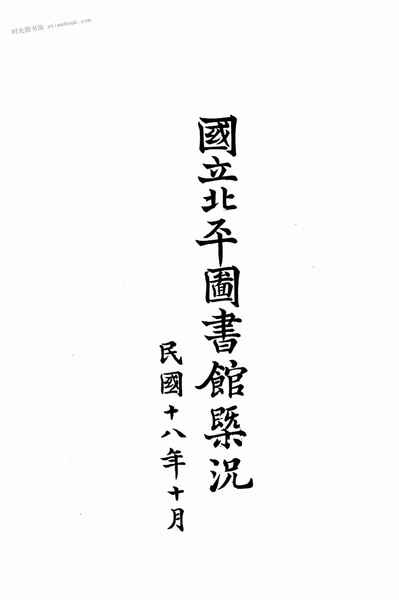 國立北平圖書館槩况
民國十八年十月